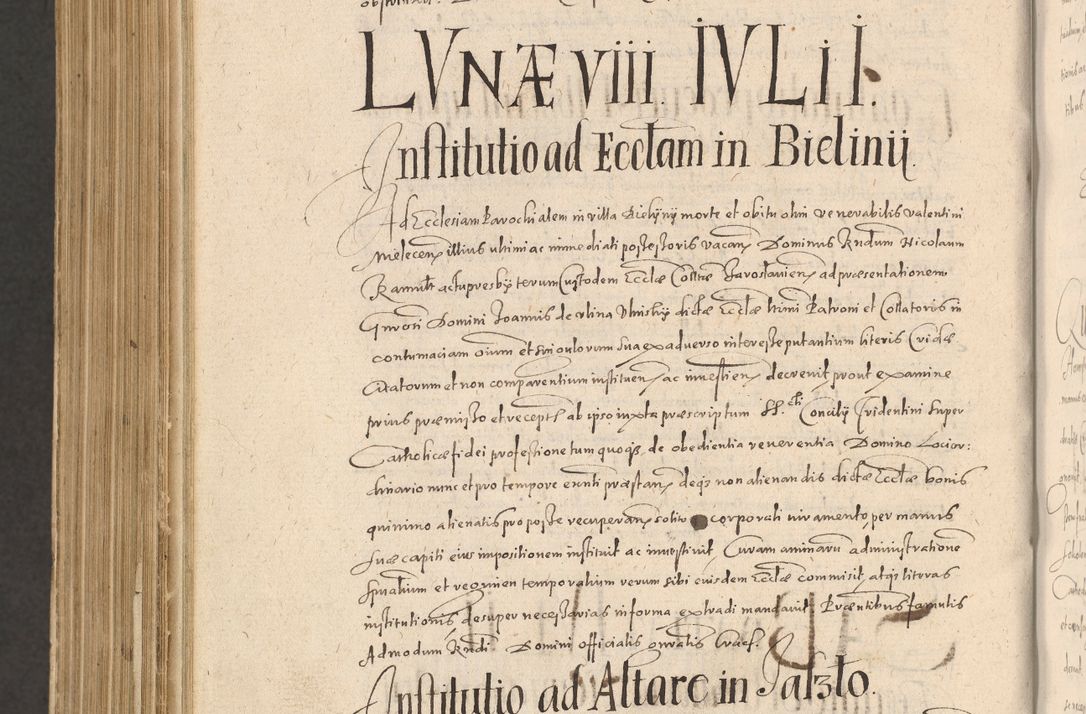 LVNÆ VIII. IVLII.
Institutio ad Ecclam in Bielinij.
Ad Ecclesiam Parochialem in villa Bielynij morte et obitu olim venerabilis Valentini
Melecen illius ultimi ac immediati possessoris vacan Dominus Rndum Nicolaum
Ramult actu presbyterum Custodem Ecclæ Colltæ Jaroslavien ad præsentationem
Gnrosi Domini Joannis de dictæ Ecclæ Patroni et Collatoris in
contumaciam oium et singulorum sua ex adverso interesse putantium literis Cridæ
citatorum et non comparentium instituen ac investien decrevit prout examine
prius præmisso et recepta ab ipso iuxta præscriptum SS. cti Concilij Tridentini super
Catholicæ fidei professione tum quoqs de obedientia reverentia Domino Locior:
dinario nunc et pro tempore exnti præstan deqs non alienandis dictæ Ecclæ bonis
quinimo alienatis pro posse recuperan solito corporali iuramento, per manus
suæ capiti eius impositionem instituit ac investivit Curam animaru administratione
spnalium et regimen temporalium verum sibi eiusdem Ecclæ commisit, atqs literas
institutionis desuper necessarias in forma extradi mandavit. Præentibus famulis
Admodum Rndi Domini officialis gnralis Cracs.
Institutio ad Altare in